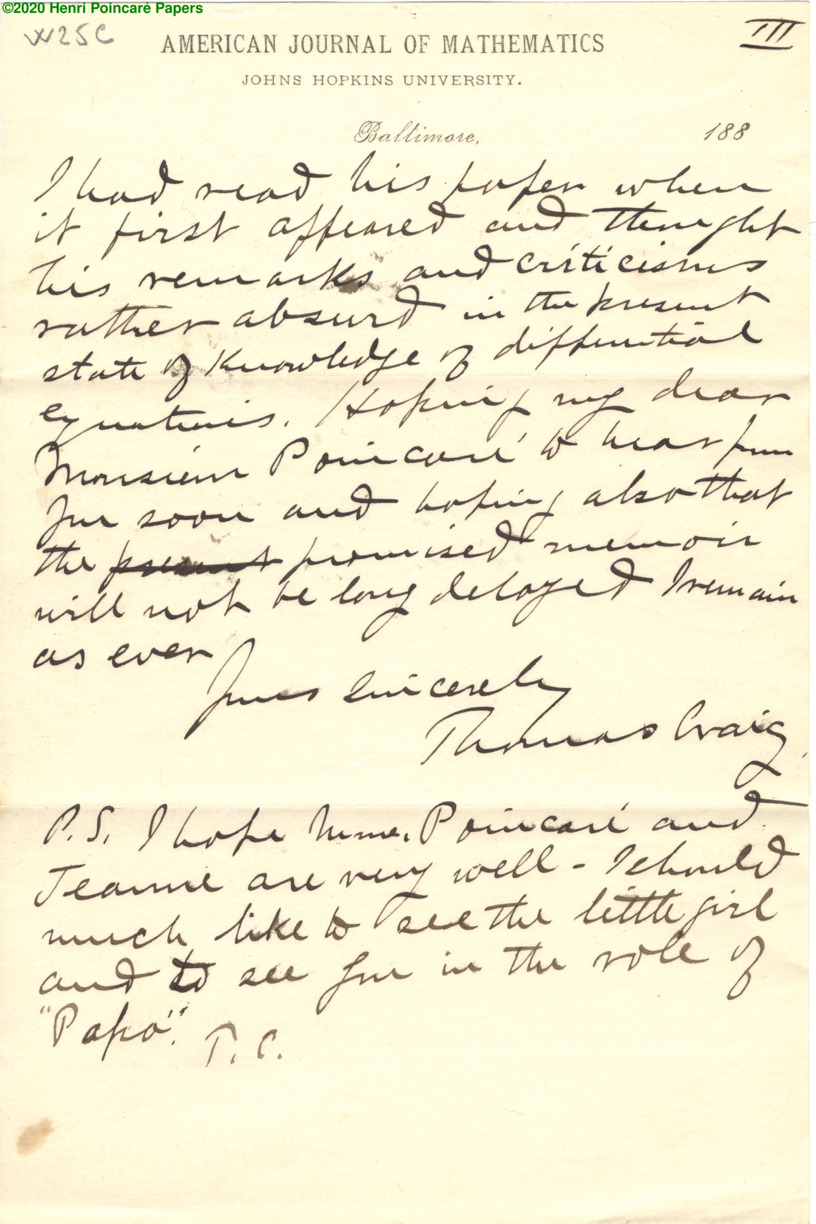 ©2020 Henri Poincaré Papers
W25C
III
AMERICAN JOURNAL OF MATHEMATICS
JOHNS HOPKINS UNIVERSITY.
Baltimore, 188
I had read his paper when
it first appeared and thought
his remarks and criticisms
rather absurd in the present
state of knowledge of differential
equations. Hoping my dear
Monsieur Poincaré to hear from
you soon and hoping also that
the present promised memoir
will not be long delayed I remain
as ever
Yours Sincerely
Thomas Craig.
P.S. I hope Mme. Poincaré and
Jeanne are very well - I should
much like to see the little girl
and to see you in the role of
"Papa". T. C.